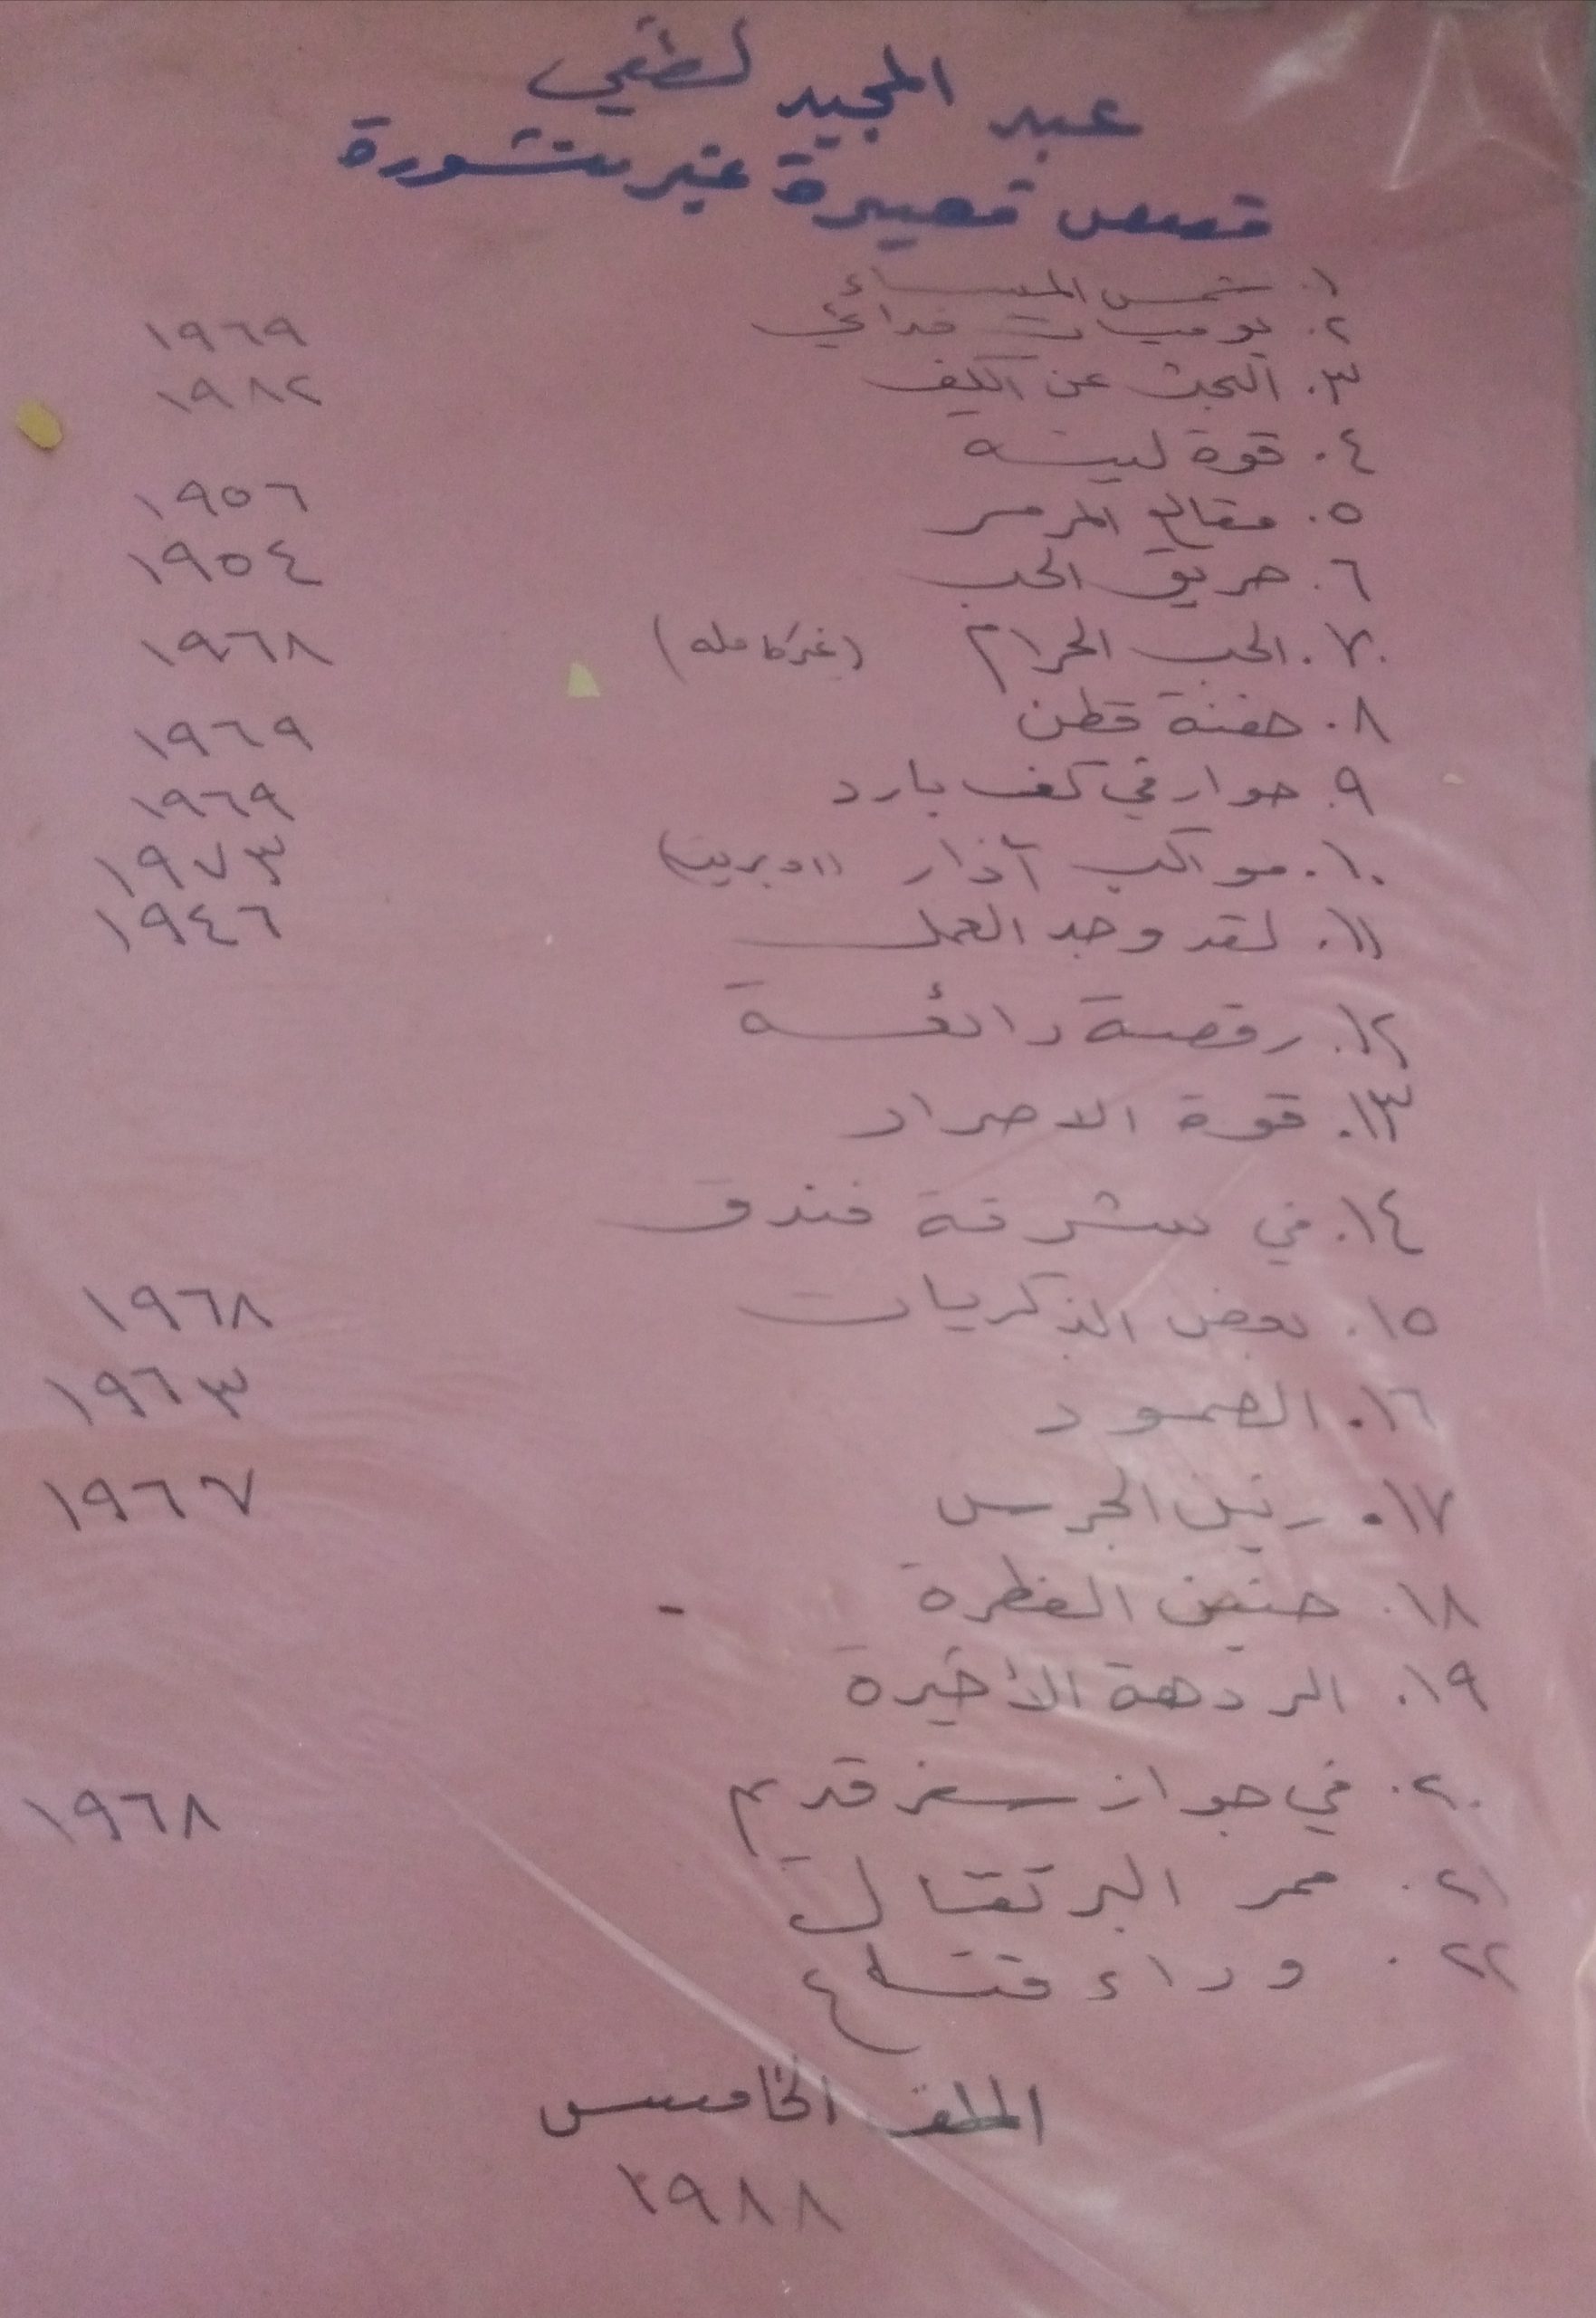 عبد المجيد لطفي
قصص قصيرة غير منشورة
١. شمس المساء
٢. يوميات فدائي ١٩٦٩
٣. البحث عن الكيف ١٩٨٢
٤. قوة لينة
٥. مقالع المرمر ١٩٥٦
٦. حريق الحب ١٩٥٤
٧. الحب الحرام (غير كاملة) ١٩٦٨
٨. حفنة قطن ١٩٦٩
٩. حوار في كهف بارد ١٩٦٩
١٠. مواكب آذار ١٩٧٣
١١. لقد وجد العمل ١٩٤٦
١٢. رقصة رائعة
١٣. قوة الاصرار
١٤. في شرفة فندق
١٥. بعض الذكريات ١٩٦٨
١٦. الصمود ١٩٦٣
١٧. رنين الجرس ١٩٦٧
١٨. حنين الفطرة -
١٩. الردهة الأخيرة
٢٠. في جواز سفر قديم ١٩٦٨
٢١. ممر البرتقال
٢٢. وراء قناع
الملف الخامس
١٩٨٨